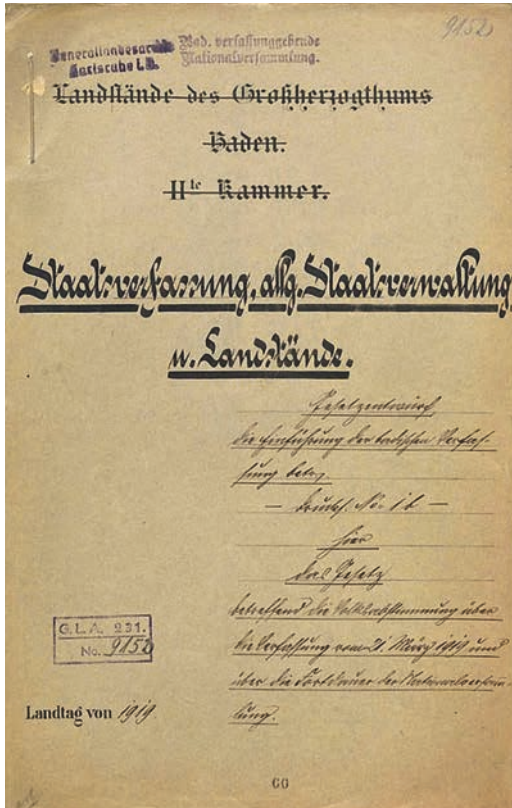 9152
Generallandesarchiv
Karlsruhe i. B.
Bad. verfassunggebende
Nationalversammlung.
Landstände des Großherzogthums
Baden.
IIte Kammer.
Staatsverfassung, allg. Staatsverwaltung
u. Landstände.
Gesetzentwurf,
die Einführung der badischen Verfas-
sung betr.
— Drucks. No. 1b —
hier
das Gesetz
betreffend die Volksabstimmung über
die Verfassung vom 21. März 1919 und
über die Fortdauer der Nationalversamm-
lung.
G. L. A. 231.
No. 9152
Landtag von 1919.
60